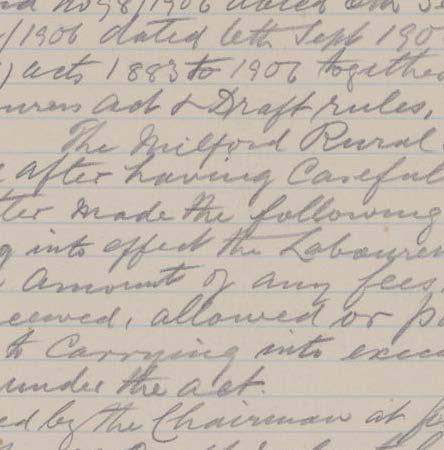 nd No 98/1906 dated 6th S
/1906 dated 6th Sept 190
) acts 1883 to 1906 together
urers Act & Draft rules,
The Milford Rural
e after having Careful
tter made the following
g into effect the Laboure
e amount of any fees
ceived, allowed or pa
to Carrying into exec
under the act.
ed by the Chairman at